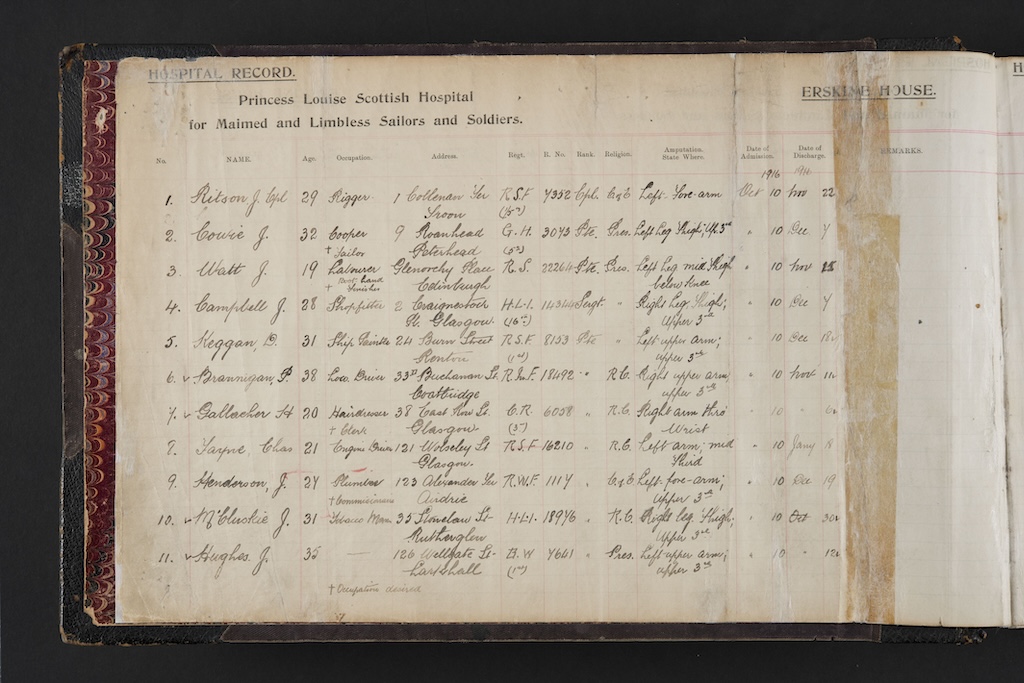 HOSPITAL RECORD.
Princess Louise Scottish Hospital
for Maimed and Limbless Sailors and Soldiers.
ERSKINE HOUSE.
No. NAME. Age. Occupation. Address. Regt. R. No. Rank. Religion. Amputation. State Where. Date of Admission. Date of Discharge. REMARKS.
1916
1. Ritson J. Cpl 29 Rigger 1 Collenan Ter R.S.F 7352 Cpl. C of E Left Fore-arm Oct 10 Nov 22
Troon
2. Cowie J. 32 Cooper 9 Roanhead G.H. 3073 Pte. Pres. Left Leg Thigh; Up. 3rd " 10 Dec 7
† Tailor Peterhead (5th)
3. Watt J. 19 Labourer Glenorchy Place R.S. 22264 Pte. Pres. Left Leg mid Thigh " 10 Nov
† Edinburgh below Knee
4. Campbell J. 28 Shopfitter 2 Craignestock H.L.I. 14344 Sergt. " Right Leg Thigh; " 10 Dec 7
St. Glasgow. (16th) Upper 3rd
5. Keggan, D. 31 Ship Painter 24 Burn Street R.S.F. 8153 Pte " Left upper arm; " 10 Dec 18
Renton (1st) upper 3rd
6. v Brannigan, P. 38 Loco. Driver 33 Buchanan St. R.In.F. 18492 " R.C. Right upper arm, " 10 Nov 11
Coatbridge upper 3rd
7. v Gallacher H 20 Hairdresser 38 East Row St. C.R. 6058 " R.C. Right arm thro' " 10 "
† Clerk Glasgow. (5th) Wrist
8. Fayne, Chas 21 Engine Driver 121 Wolseley St R.S.F 16210 " R.C. Left arm; mid " 10 Jany 8
Glasgow. Third
9. Henderson, J. 27 Plumber 123 Alexander Ter R.W.F. 1117 " C of E Left fore-arm; " 10 Dec 19
Airdrie Upper 3rd
10. v McCluskie J. 31 Tobacco Man 35 Stonelaw St. H.L.I. 18976 " R.C. Right leg Thigh; " 10 Oct 30
Rutherglen Upper 3rd
11. v Hughes. J. 35 — 126 Wellgate St. B.W 7641 " Pres. Left upper arm; " 10 " 12
Larkhall (1st) upper 3rd
† Occupation desired